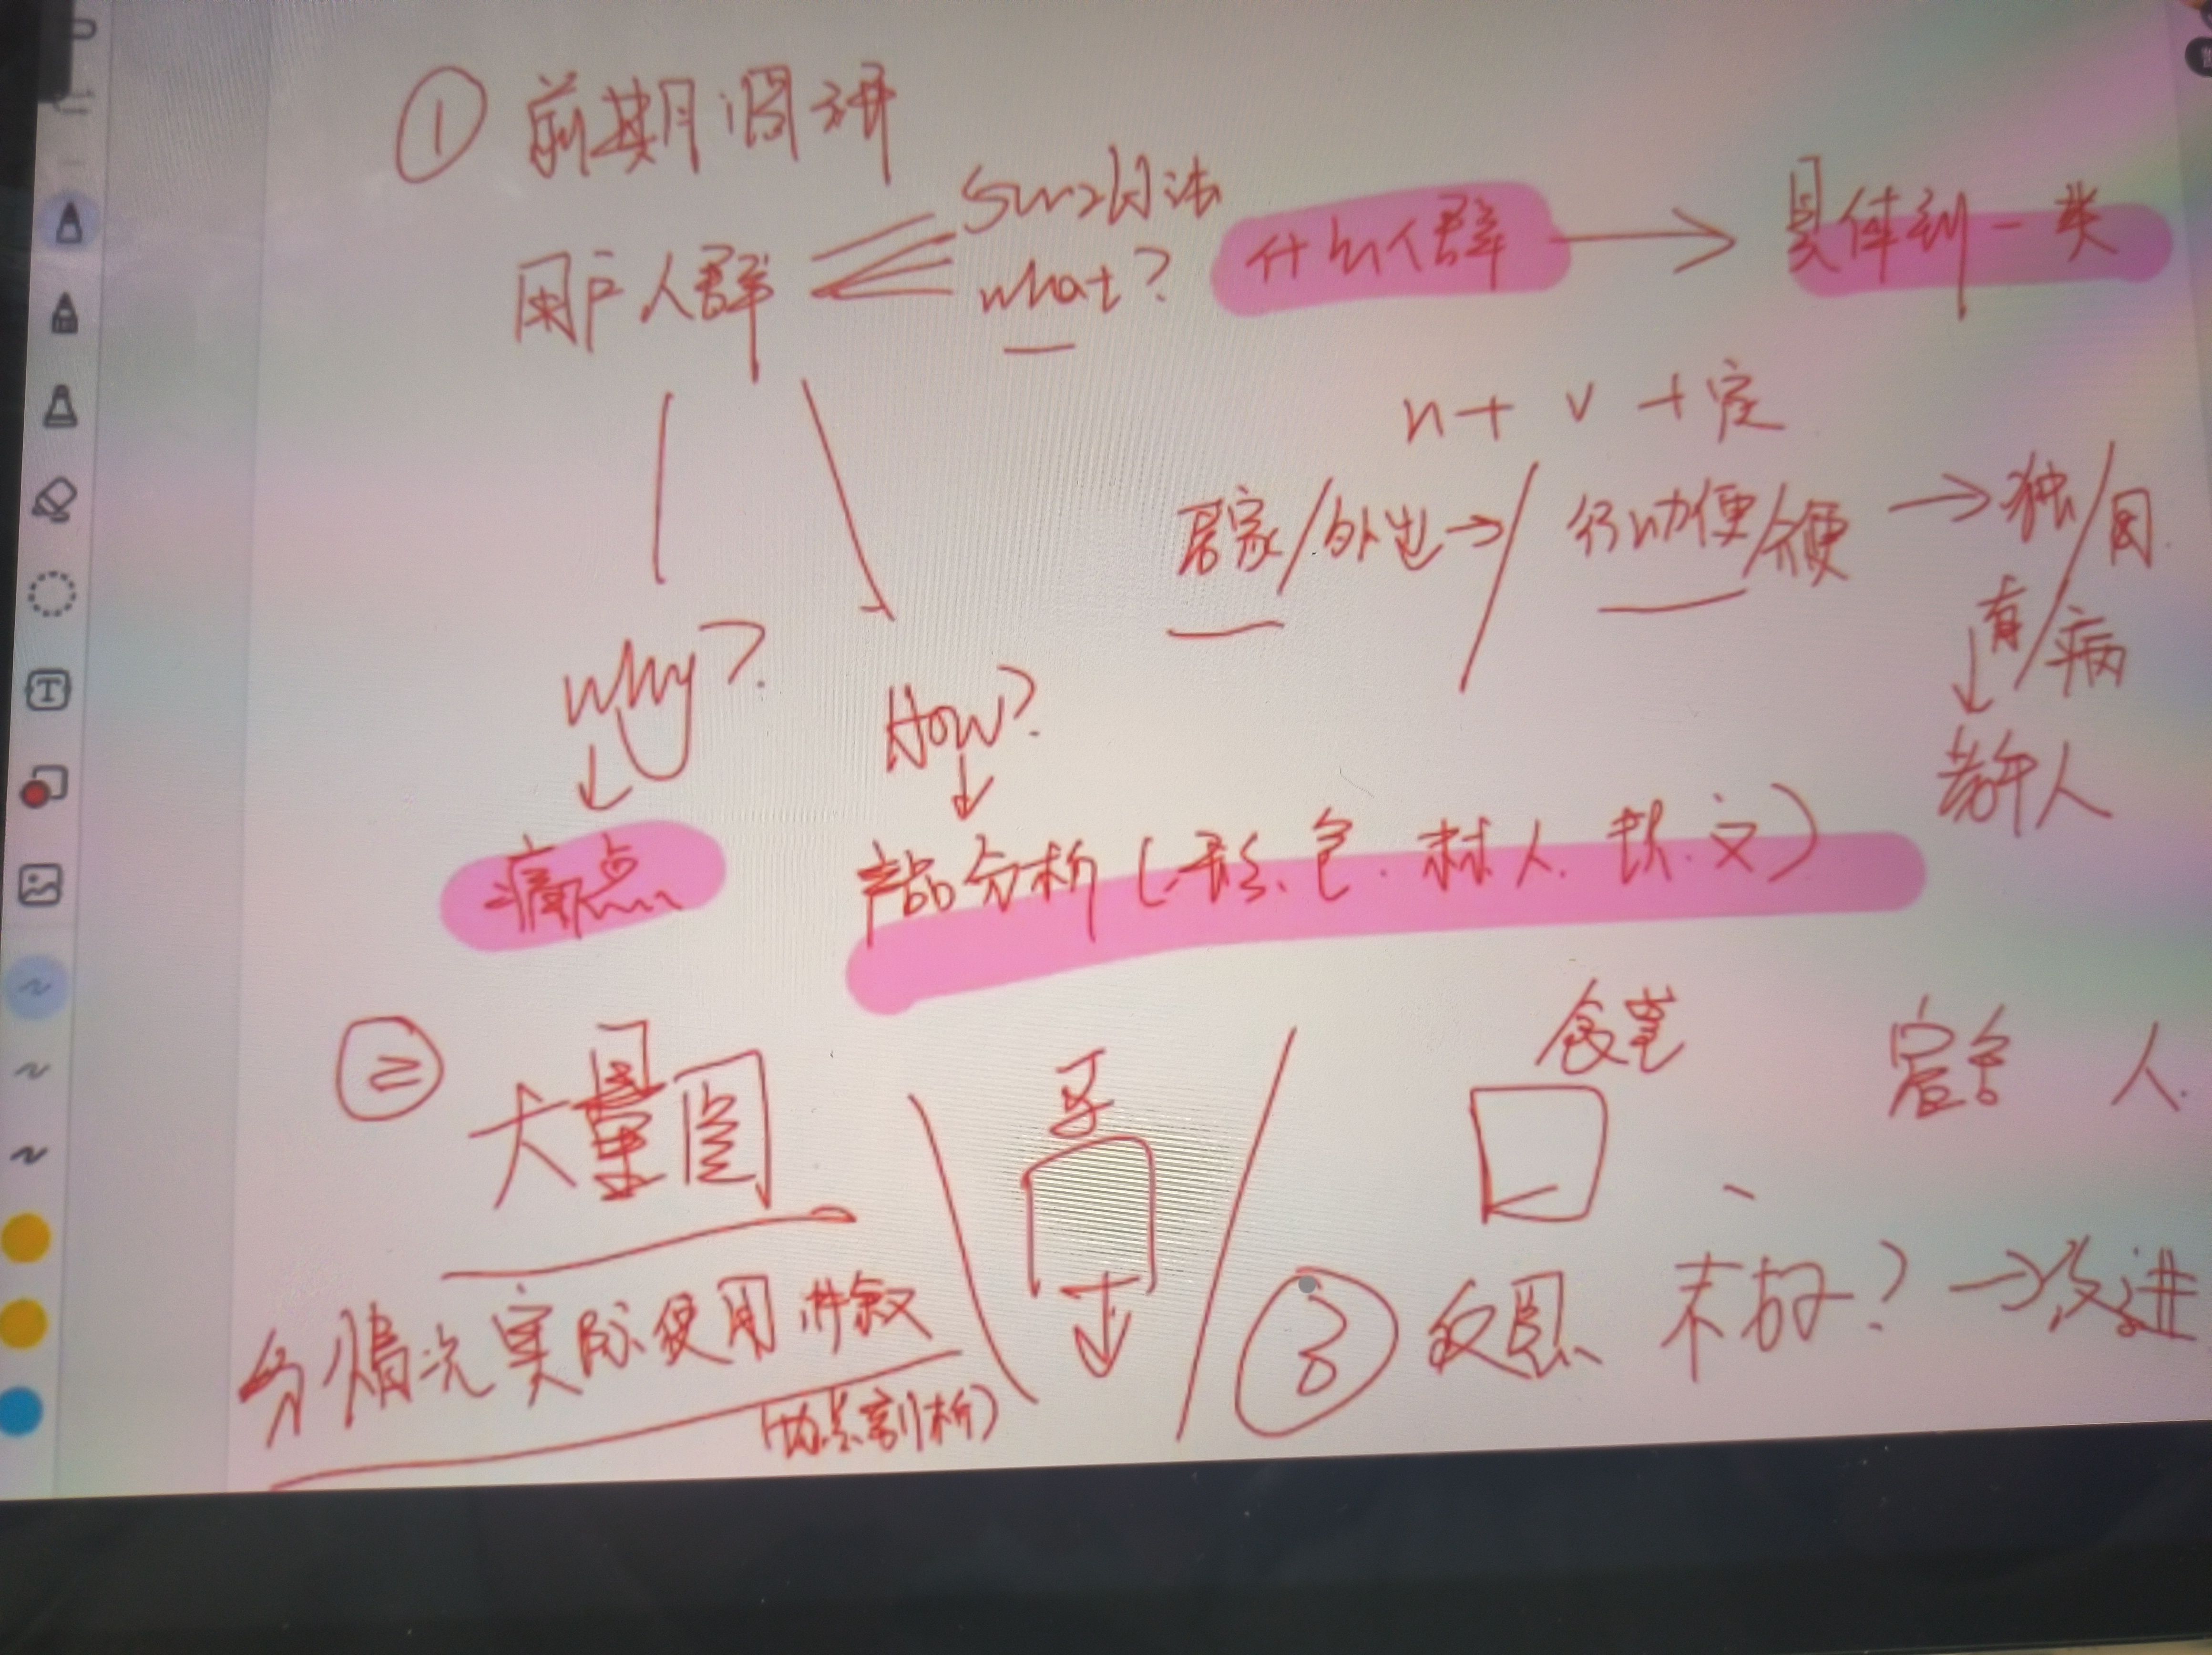 ① 前期调研
用户人群
what?
什么人群 → 具体到一类
n + v + 定
居家/外出 → / 行动便/不便 → 独/
有/病
老年人
why?
How?
痛点
产品分析(形.色.材.人.技.文)
② 大量图
牙
食堂
宿舍 人
分情况实际使用
③ 反思 未好? → 改进